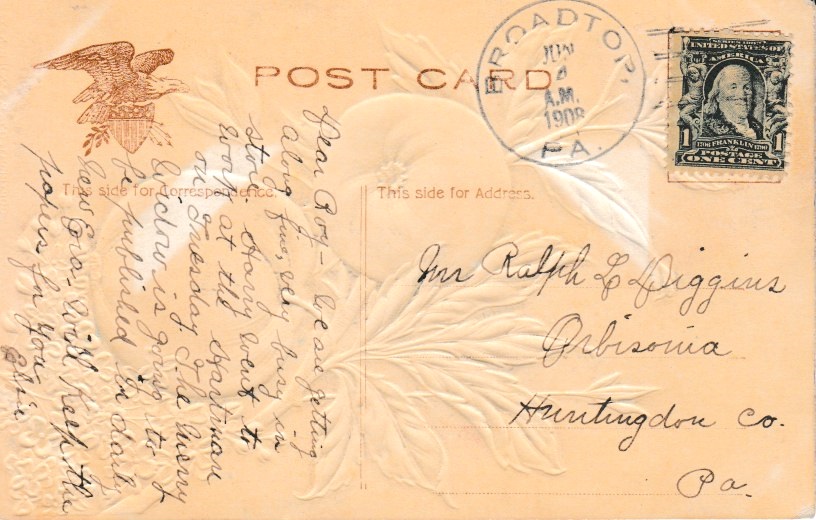 POST CARD
BROADTOP,
JUN
A.M.
1908
PA.
SERIES 1902
UNITED STATES OF
AMERICA
1 1706 FRANKLIN 1790 1
POSTAGE
ONE CENT
This side for Correspondence.
This side for Address.
Dear Roy – We are getting
along fine, very busy in
store. Harry went to
work at the Hartman
on Tuesday. The Merry
Widow is going to
be published in daily
New Era – Will Keep the
papers for you.
Elsie
Mr Ralph L Diggins
Orbisonia
Huntingdon Co.
Pa.